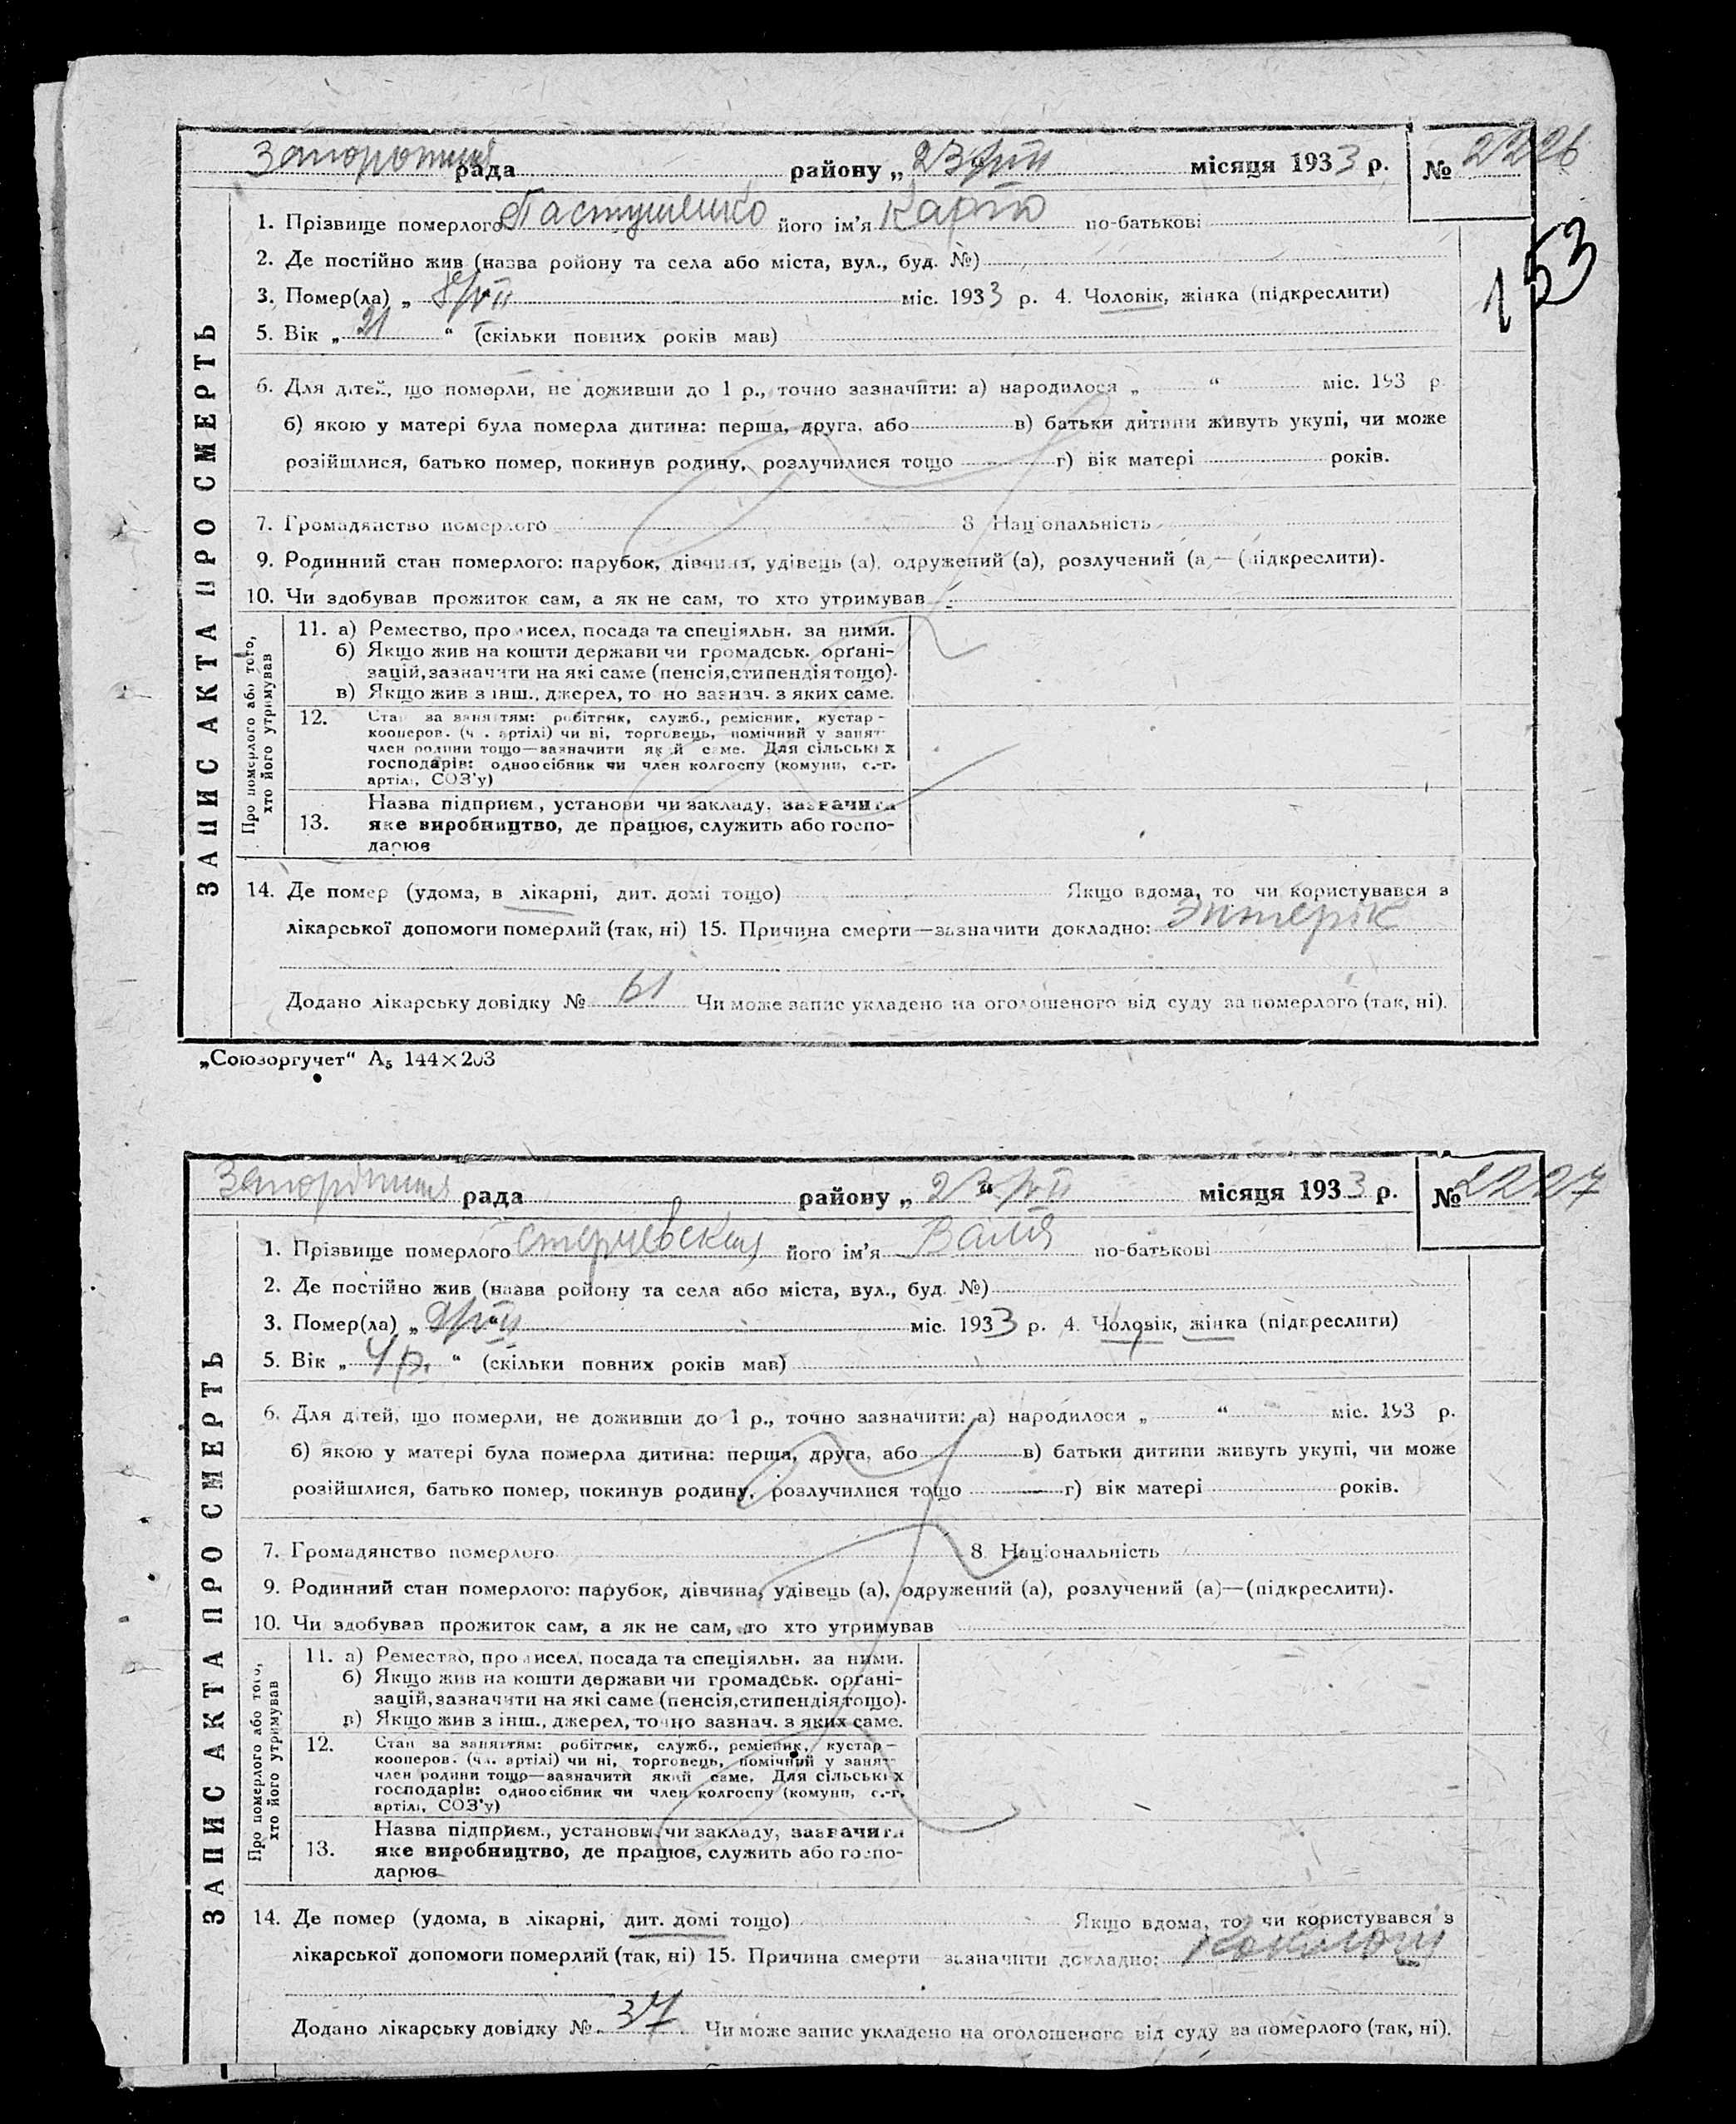 рада району „ 23/VII місяця 1933 р. № 2226
153
1. Прізвище померлого Пастушенко його ім'я по-батькові
2. Де постійно жив (назва ройону та села або міста, вул., буд. №)
3. Помер(ла) „ міс. 1933 р. 4. Чоловік, жінка (підкреслити)
5. Вік „ 21 “ (скільки повних років мав)
6. Для дітей, що померли, не доживши до 1 р., точно зазначити: а) народилося „ “ міс. 193 р.
б) якою у матері була померла дитина: перша, друга, або в) батьки дитини живуть укупі, чи може
розійшлися, батько помер, покинув родину, розлучилися тощо г) вік матері років.
7. Громадянство померлого 8 Національність
9. Родинний стан померлого: парубок, дівчина, удівець (а), одружений (а), розлучений (а — (підкреслити).
10. Чи здобував прожиток сам, а як не сам, то хто утримував
ЗАПИС АКТА ПРО СМЕРТЬ
Про померлого або того,
хто його утримував
11. а) Ремество, промисел, посада та спеціяльн. за ними.
б) Якщо жив на кошти держави чи громадськ. орґані-
зацій, зазначити на які саме (пенсія, стипендія тощо).
в) Якщо жив з інш., джерел, точно зазнач. з яких саме.
12. Стан за заняттям: робітник, служб., ремісник, кустар—
кооперов. (чл. артілі) чи ні, торговець, помічний у занят
член родини тощо—зазначити який саме. Для сільських
господарів: одноосібник чи член колгоспу (комуни, с.-г.
артілі, СОЗ'у)
Назва підприєм., установи чи закладу, зазначити
13. яке виробництво, де працює, служить або госпо-
дарює
14. Де помер (удома, в лікарні, дит. домі тощо) Якщо вдома, то чи користувався з
лікарської допомоги померлий (так, ні) 15. Причина смерти—зазначити докладно: Энтерік
Додано лікарську довідку № 61 Чи може запис укладено на оголошеного від суду за померлого (так, ні).
„Союзоргучет“ А₅ 144×203
рада району „ 23/VII місяця 1933 р. № 2227
1. Прізвище померлого його ім'я Валя по-батькові
2. Де постійно жив (назва ройону та села або міста, вул., буд. №)
3. Помер(ла) „ міс. 1933 р. 4. Чоловік, жінка (підкреслити)
5. Вік „ 4 р. “ (скільки повних років мав)
6. Для дітей, що померли, не доживши до 1 р., точно зазначити: а) народилося „ “ міс. 193 р.
б) якою у матері була померла дитина: перша, друга, або в) батьки дитини живуть укупі, чи може
розійшлися, батько помер, покинув родину, розлучилися тощо г) вік матері років.
7. Громадянство померлого 8 Національність
9. Родинний стан померлого: парубок, дівчина, удівець (а), одружений (а), розлучений (а)—(підкреслити).
10. Чи здобував прожиток сам, а як не сам, то хто утримував
ЗАПИС АКТА ПРО СМЕРТЬ
Про померлого або того,
хто його утримував
11. а) Ремество, промисел, посада та спеціяльн. за ними.
б) Якщо жив на кошти держави чи громадськ. орґані-
зацій, зазначити на які саме (пенсія, стипендія тощо).
в) Якщо жив з інш., джерел, точно зазнач. з яких саме.
12. Стан за заняттям: робітник, служб., ремісник, кустар—
кооперов. (чл. артілі) чи ні, торговець, помічний у занят
член родини тощо—зазначити який саме. Для сільських
господарів: одноосібник чи член колгоспу (комуни, с.-г.
артілі, СОЗ'у)
Назва підприєм., установи чи закладу, зазначити
13. яке виробництво, де працює, служить або госпо-
дарює
14. Де помер (удома, в лікарні, дит. домі тощо) Якщо вдома, то чи користувався з
лікарської допомоги померлий (так, ні) 15. Причина смерти зазначити докладно:
Додано лікарську довідку № 37 Чи може запис укладено на оголошеного від суду за померлого (так, ні).